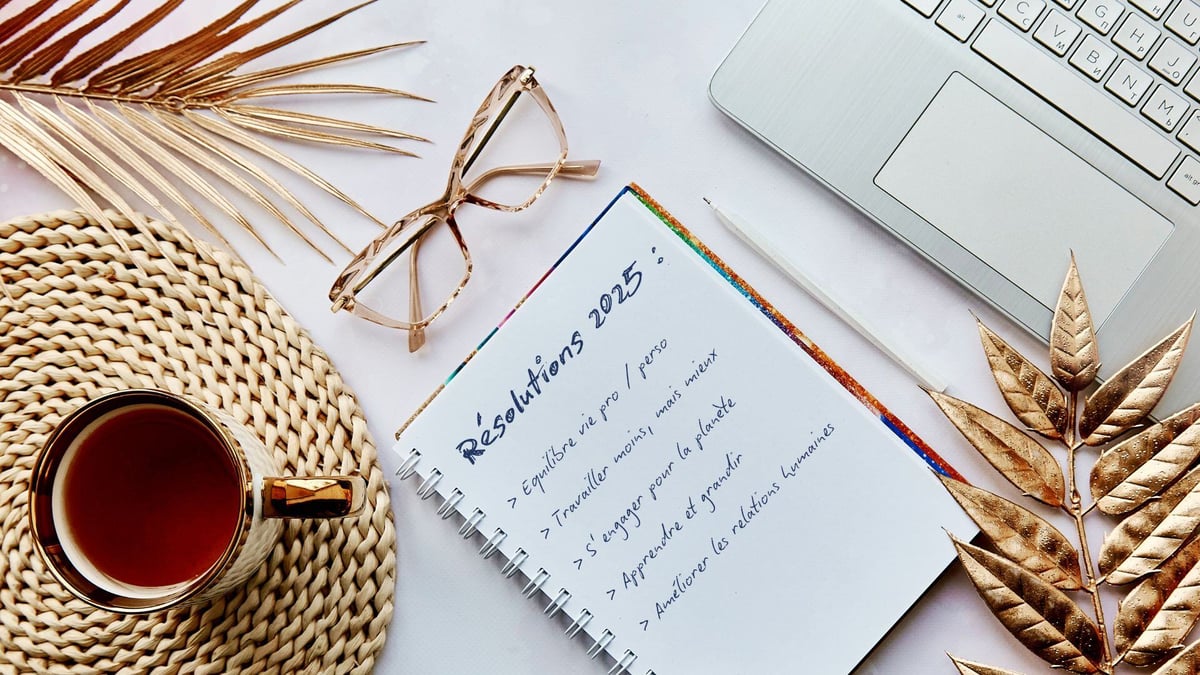 Résolutions 2025 :
> Equilibre vie pro / perso
> Travailler moins, mais mieux
> s'engager pour la planète
> Apprendre et grandir
> Améliorer les relations humaines
alt
C С
V М
B И
G П
H Р
N Т
J О
M Ь
U Г
alt gr